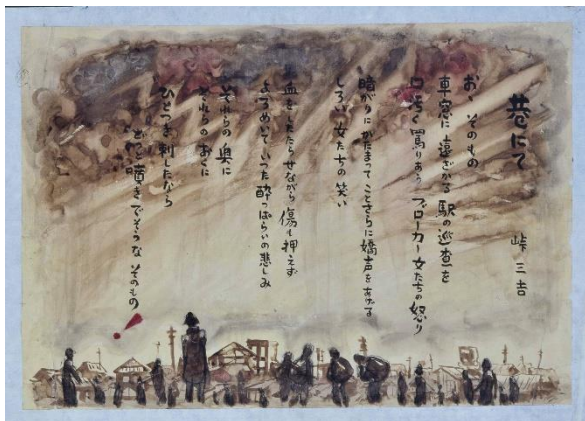 巷にて
峠三吉
おゝそのもの
車窓に遠ざかる駅の巡査を
口汚く罵りあうブローカー女たちの怒り
暗がりにかたまってことさらに嬌声をあげる
しろい女たちの笑い
血をしたたらせながら傷も押えず
よろめいていった酔っぱらいの悲しみ
それらの奥に
それらのおくに
ひとつき刺したなら
どっと噴きでそうなそのもの!